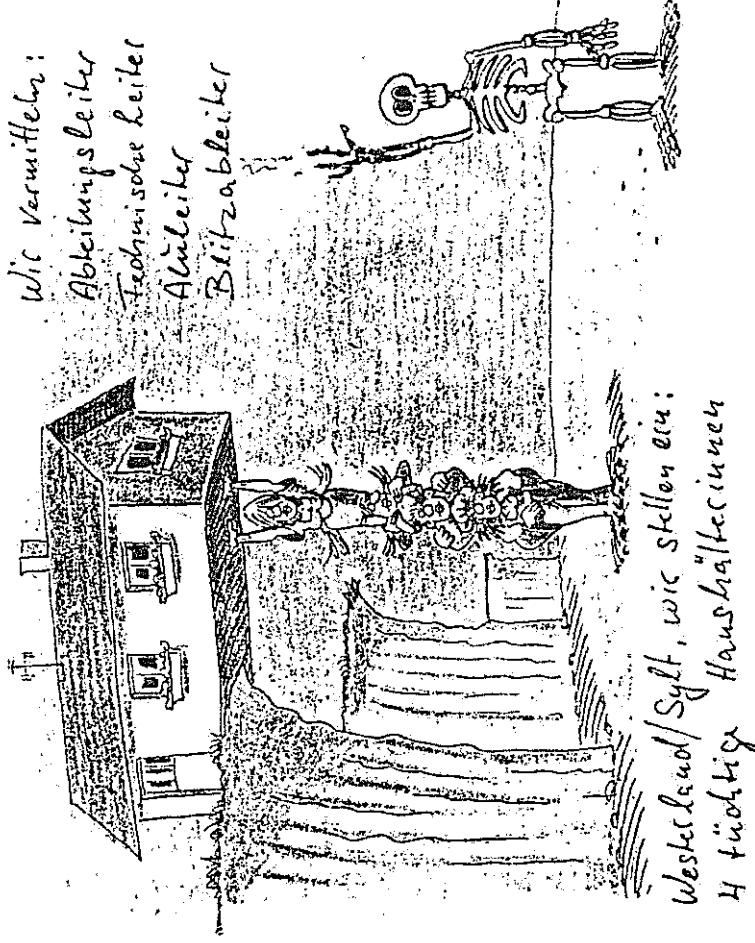 Wir vermitteln:
Abteilungsleiter
Technische Leiter
Aluleiter
Blitzableiter
Westerland/Sylt, wir stellen ein:
4 tüchtige Haushälterinnen